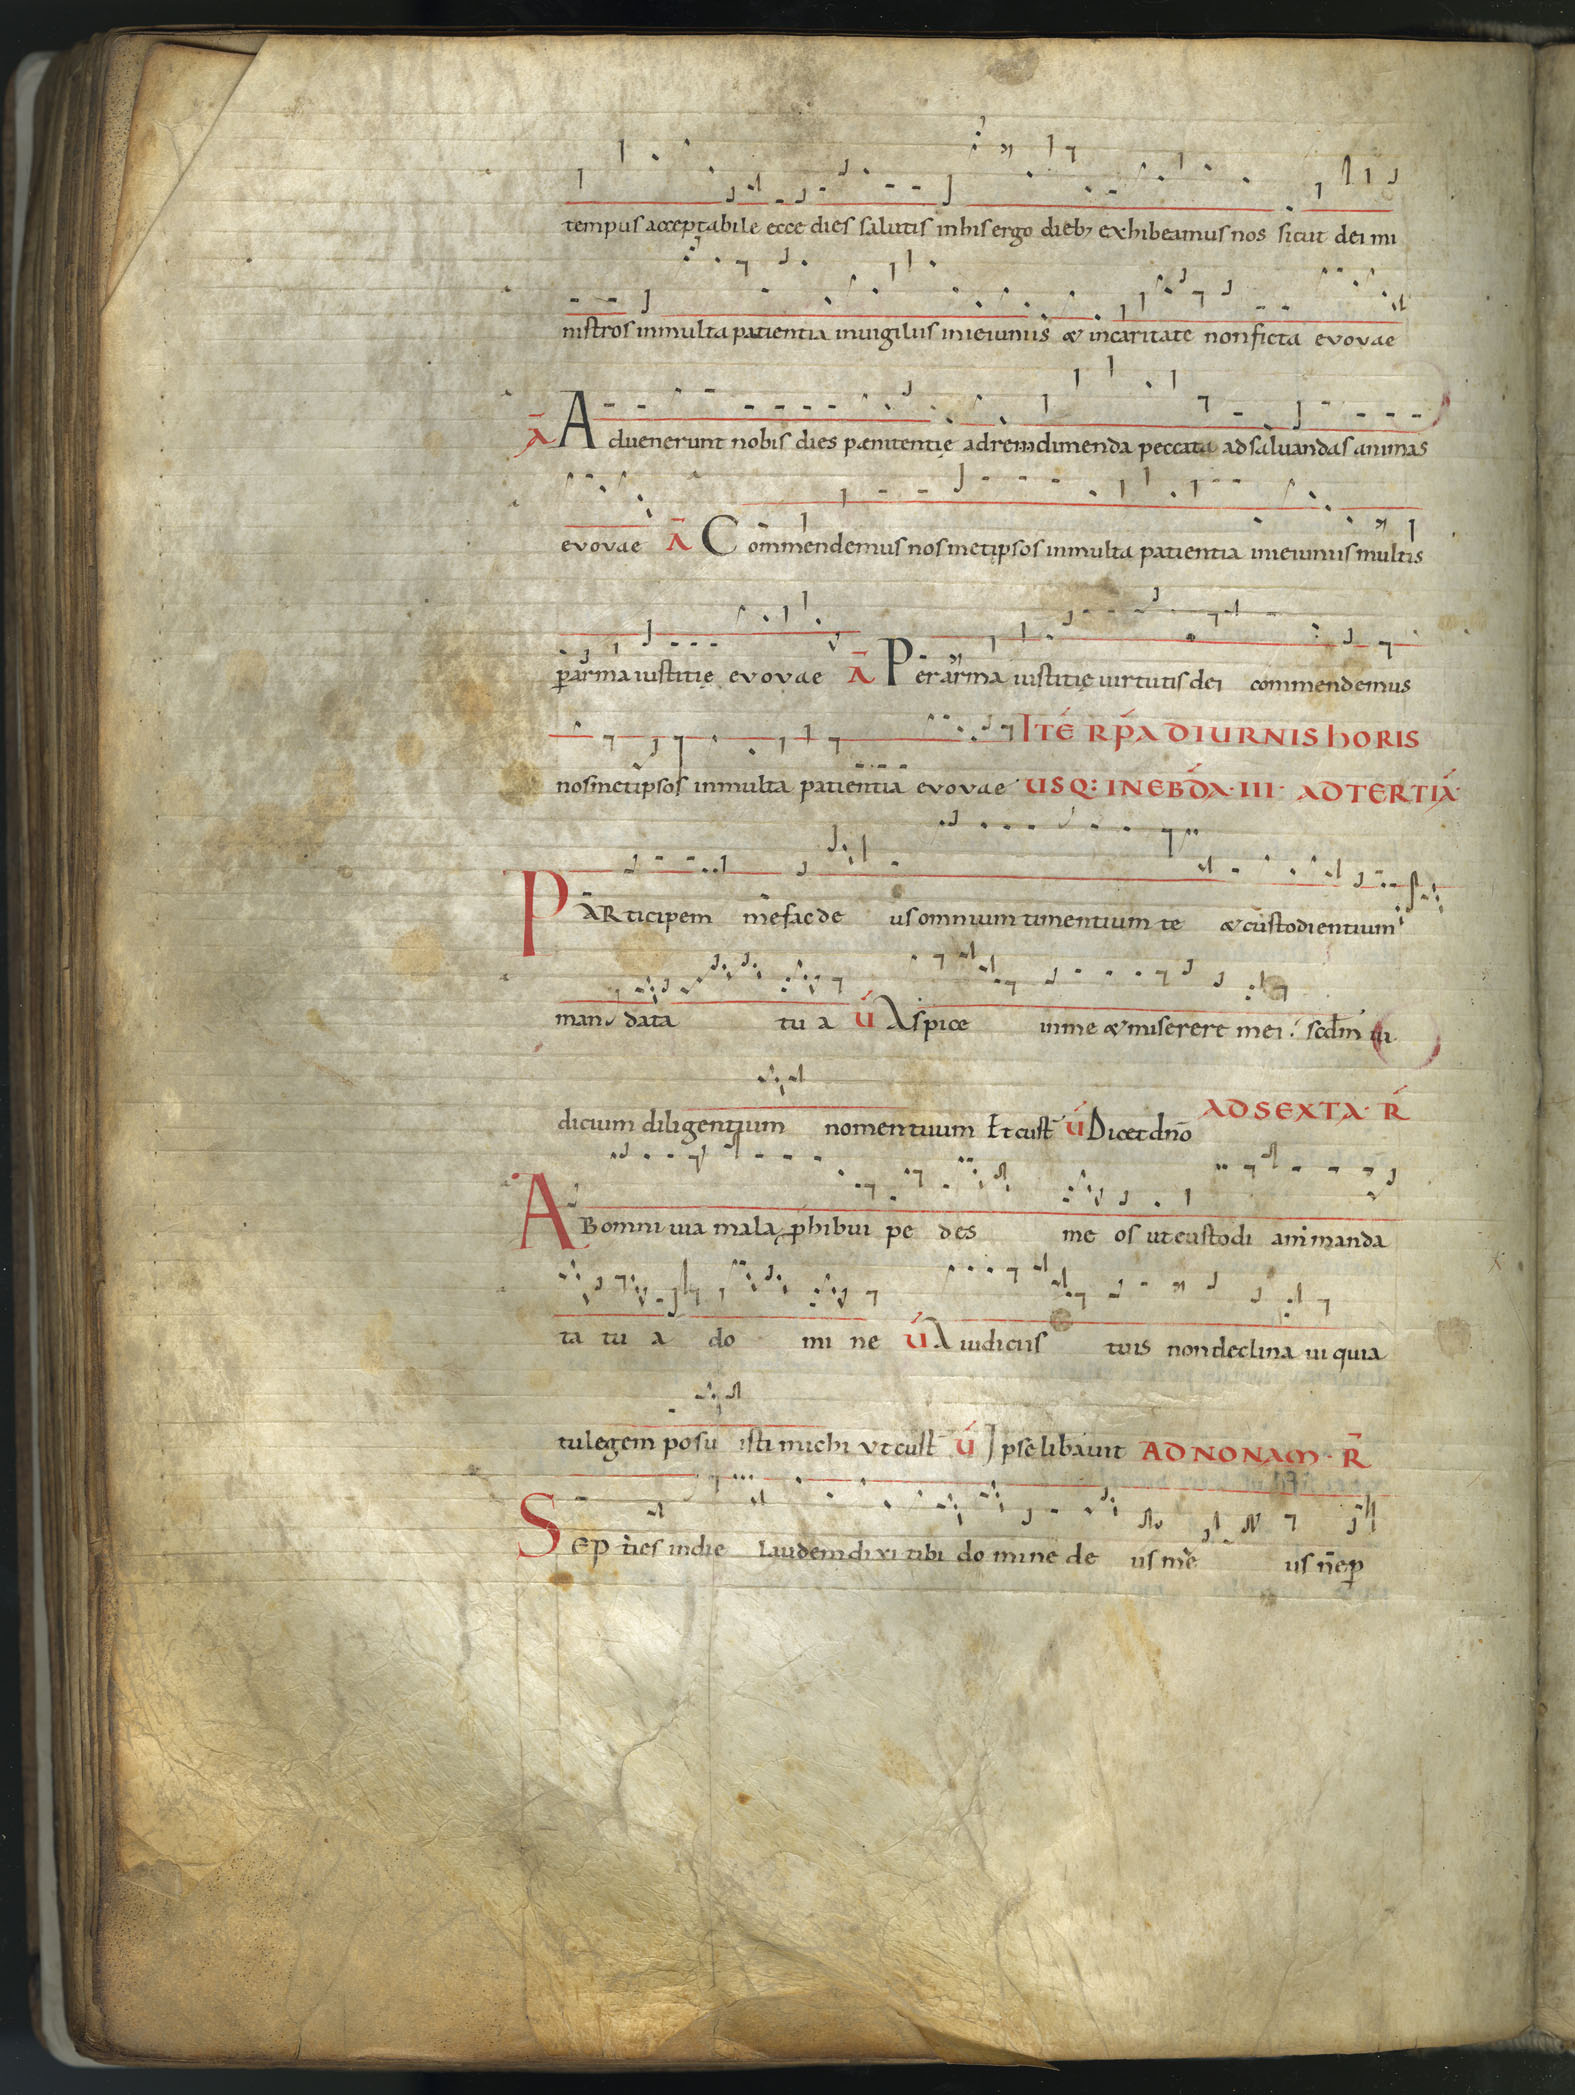 tempus acceptabile ecce dies salutis in his ergo dieb; exhibeamus nos sicut dei mi
nistros in multa patientia in uigiliis in ieiuniis & in caritate non ficta evovae
Ā Aduenerunt nobis dies pænitentię ad redimenda peccata ad saluandas animas
evovae Ā Commendemus nosmetipsos in multa patientia in ieiuniis multis
ꝑ arma iustitię evovae Ā Per arma iustitię uirtutis dei commendemus
nosmetipsos in multa patientia evovae ITĒ RP̄A DIURNIS hORIS
USQ: IN EBD̄A · III · AD TERTIĀ
PARticipem me fac de us omnium timentium te & custodientium
mandata tu a V́ Aspice in me & miserere mei : scd̄m iu
dicium diligentium nomen tuum Et cust̄ V́ Dicet dn̄o AD SEXTA · Ŕ
AB omni uia mala ꝓhibui pe des me os ut custodi am manda
ta tu a do mi ne V́ A iudiciis tuis non declina ui quia
tu legem posu isti michi vt cust̄ V́ Ipse liberauit AD NONAM · R̄
SEpties in die laudem dixi tibi do mine de us me us n̄e ꝑ